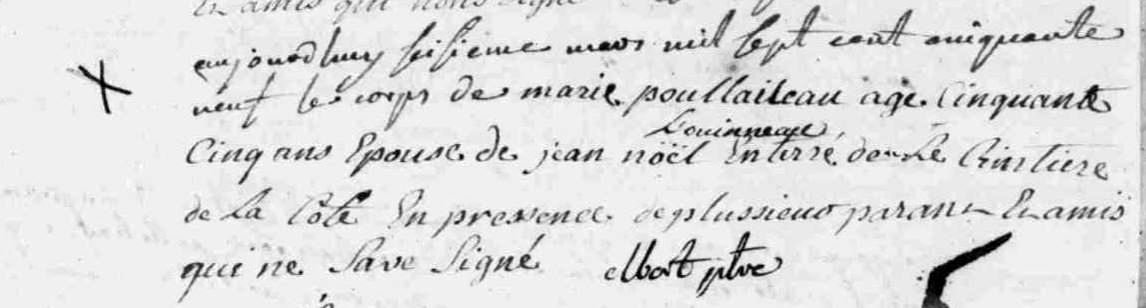 Et amis qui nons signé
aujourdhuy seisieme mars mil sept cent cinquante
neuf le corps de marie poullaileau age cinquante
Cinq ans Epouse de jean nöël Louinneau Enterré den Le Cimtiere
de La Côte En pressence de plussieurs parans Et amis
qui ne Save Signé elbert ptre